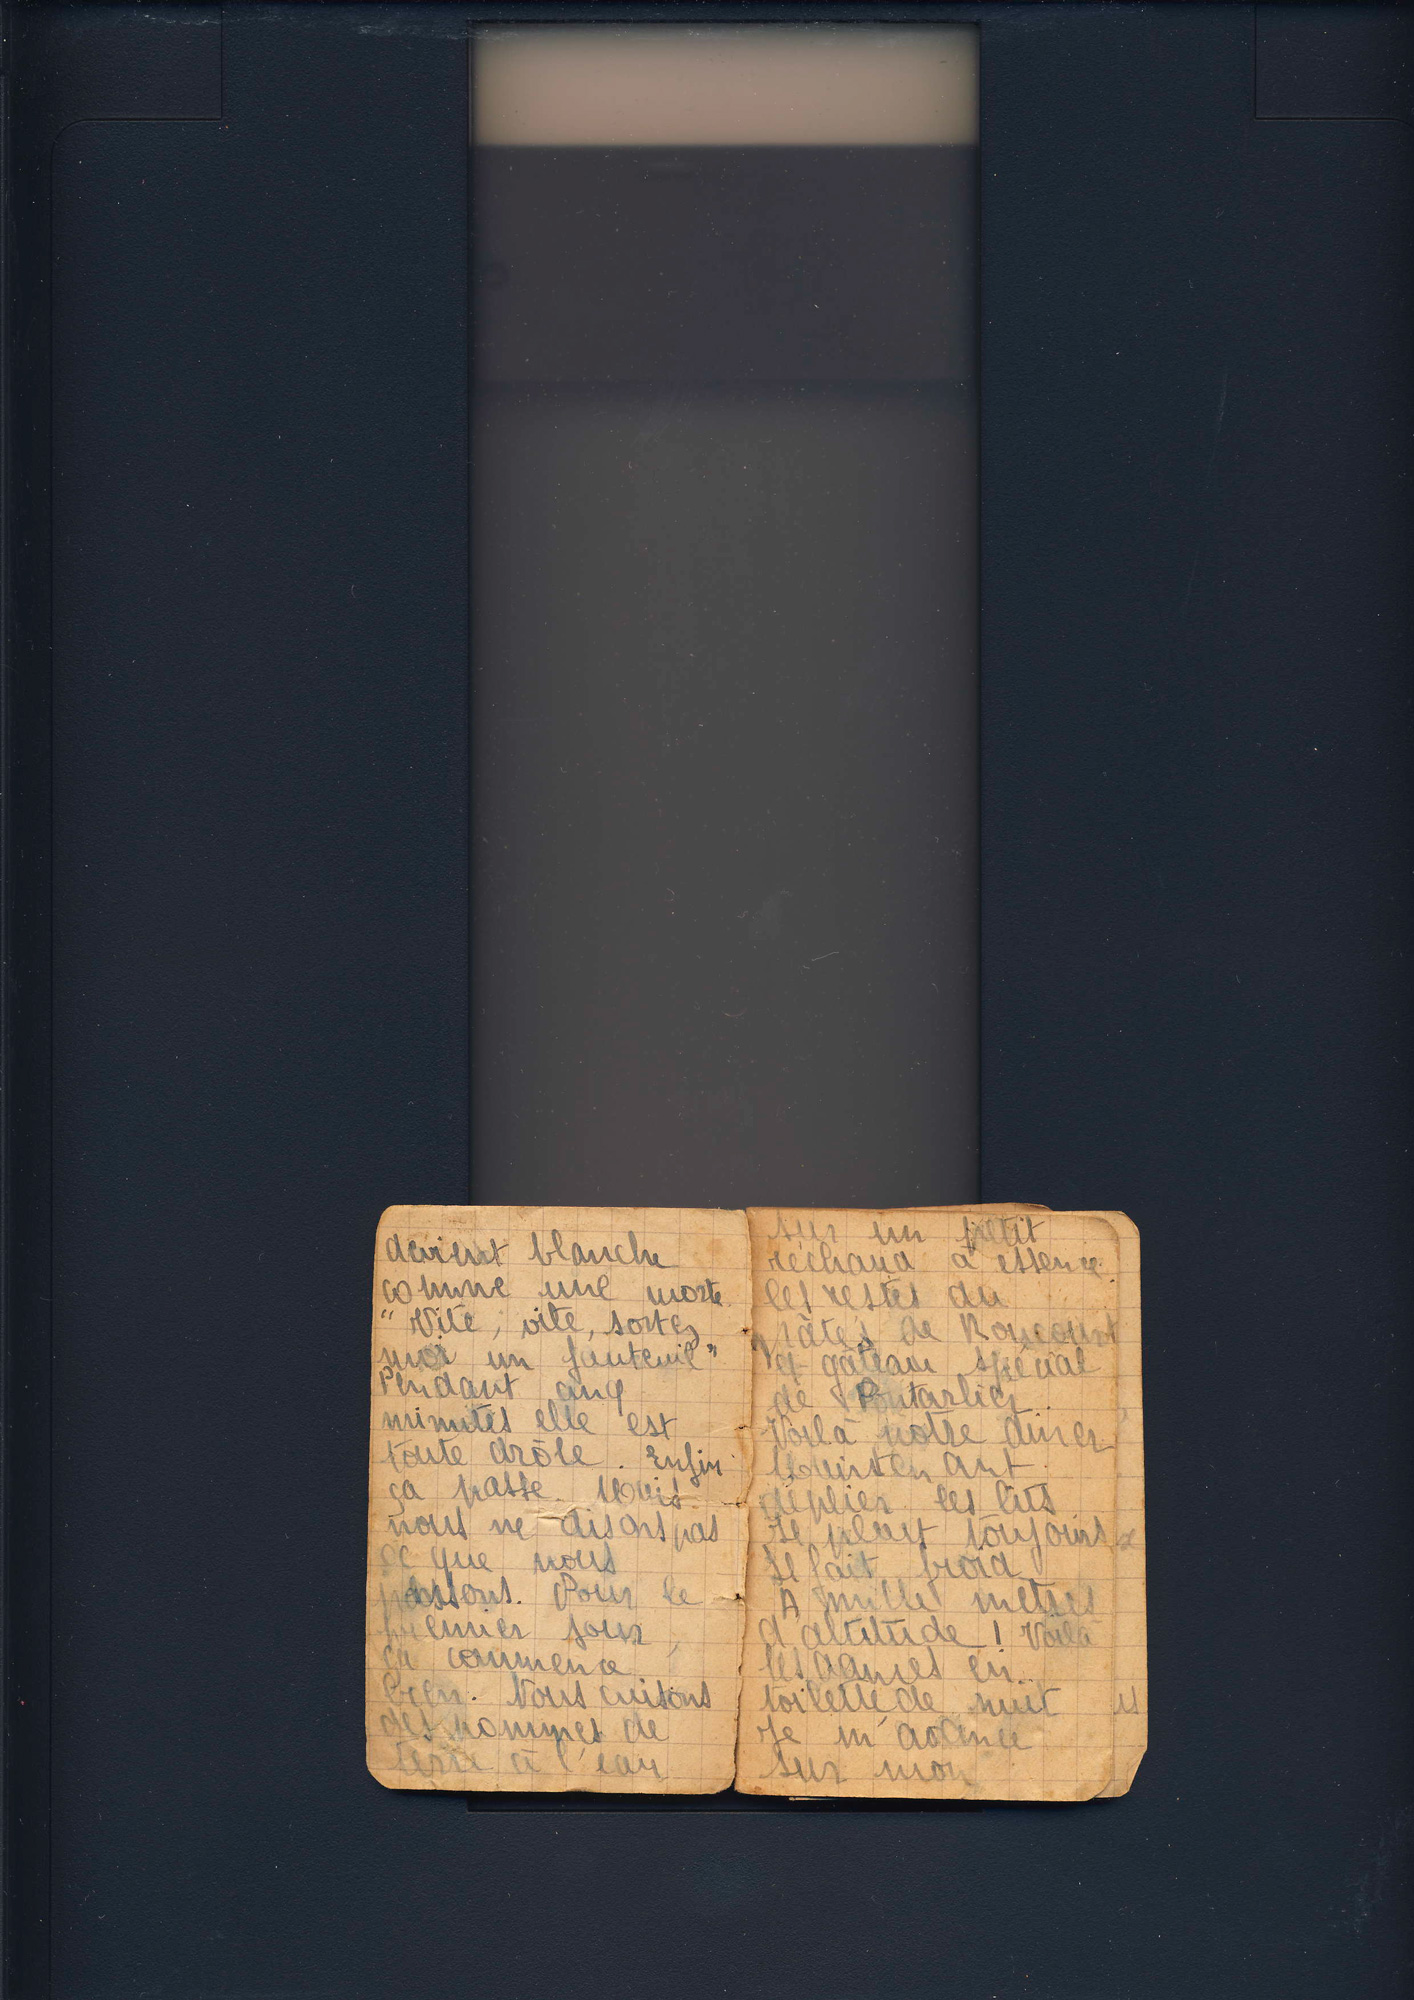 devient blanche
comme une morte.
"Vite, vite, sortez
moi un fauteuil"
Pendant cinq
minutes elle est
toute drôle. Enfin
ça passe. Mais
nous ne disons pas
ce que nous
pensons. Pour le
premier jour,
ça commence
bien. Nous cuisons
des pommes de
terre à l'eau
sur un petit
réchaud à essence.
les restes du
pâtés de Roucourt
gâteau spécial
de Pontarlier.
Voilà notre diner
Maintenant
déplier les lits
Il pleut toujours
Il fait froid
A mille mètres
d'altitude ! Voilà
les dames en
toilette de nuit
Je m'avance
sur mon